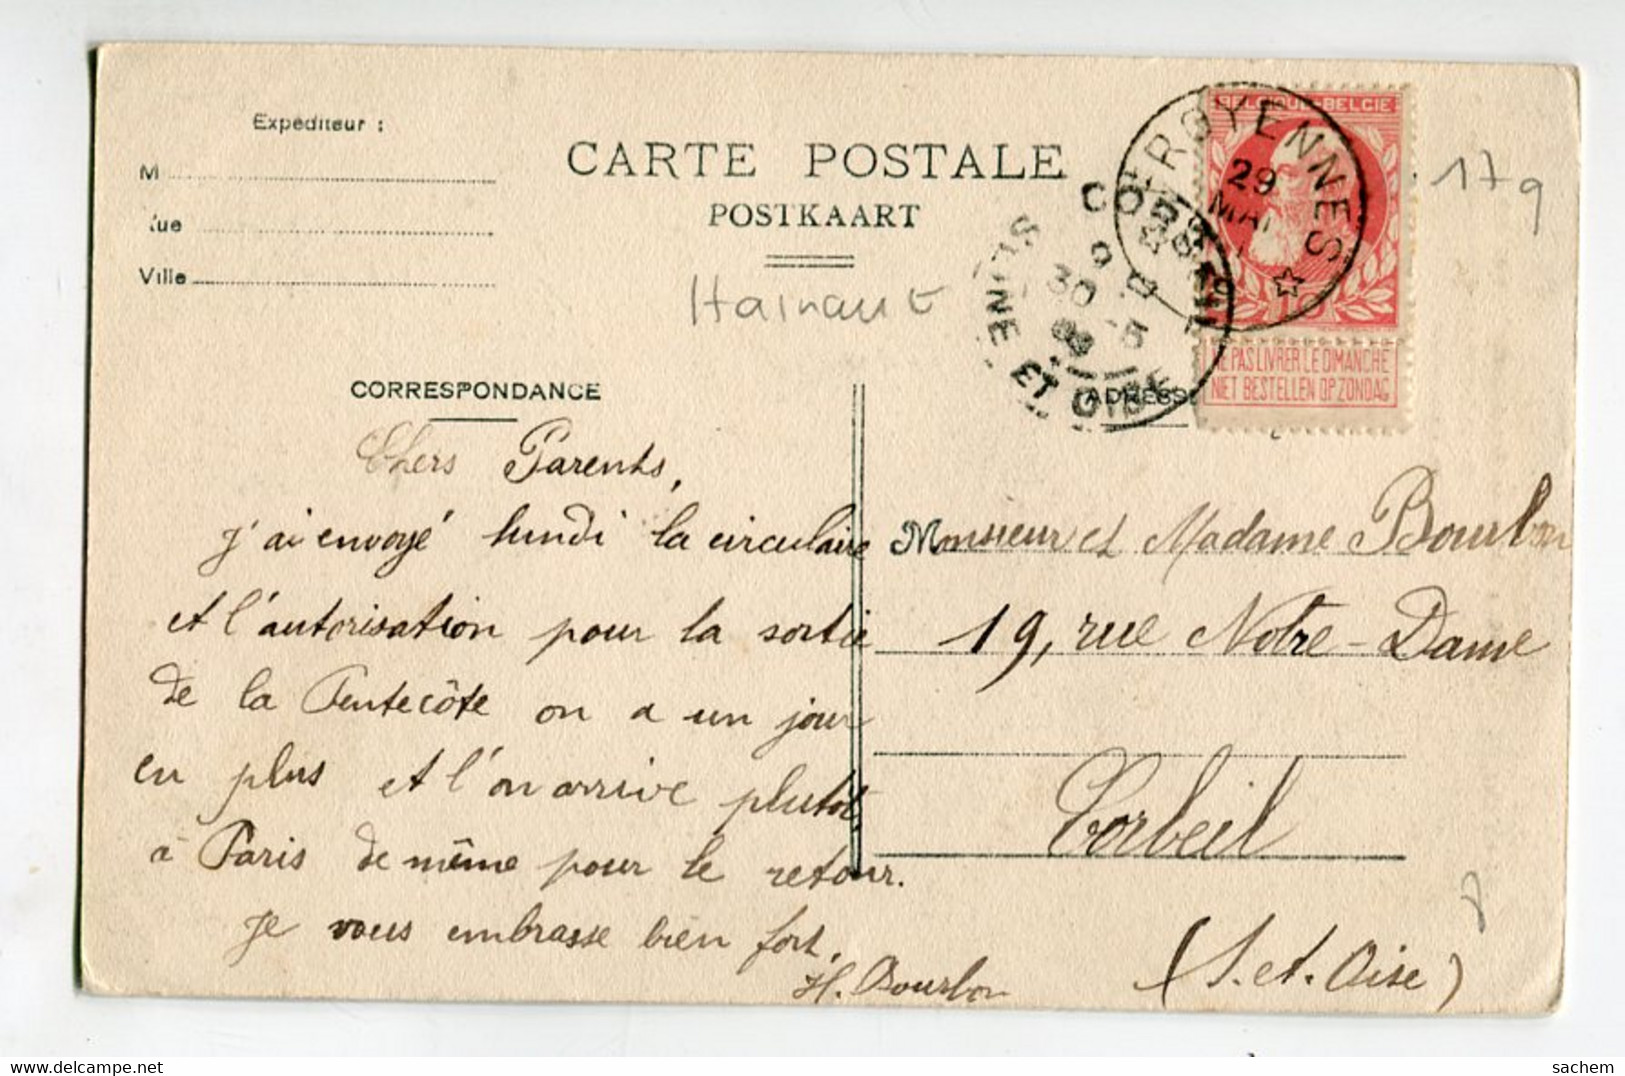 Expéditeur :
M
Rue
Ville
CARTE POSTALE
POSTKAART
Hainaut
17 9
BELGIQUE-BELGIË
ROYENNES
29
MAI
CORBEIL
30
SEINE ET OISE
NE PAS LIVRER LE DIMANCHE
NIET BESTELLEN OP ZONDAG
CORRESPONDANCE
Chers Parents,
J'ai envoyé lundi la circulaire
et l'autorisation pour la sortie
de la Pentecôte on a un jour
en plus et l'on arrive plutôt,
à Paris de même pour le retour.
Je vous embrasse bien fort.
H. Bourbon
ADRESSE
Monsieur et Madame Bourbon
19, rue Notre-Dame
Corbeil
(S. et. Oise)
sachem